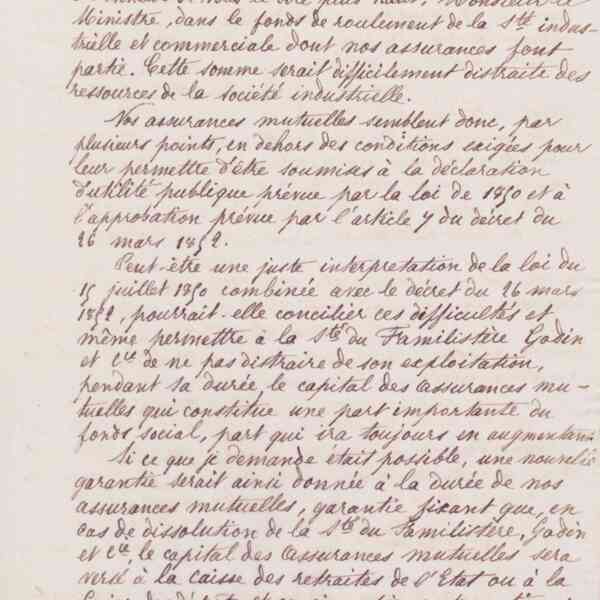 Ministre, dans le fonds de roulement de la Sté indus-
trielle et commerciale dont nos assurances font
partie. Cette somme serait difficilement distraite des
ressources de la société industrielle.
Nos assurances mutuelles semblent donc, par
plusieurs points, en dehors des conditions exigées pour
leur permettre d'être soumises à la déclaration
d'utilité publique prévue par la loi de 1850 et à
l'approbation prévue par l'article 7 du décret du
26 mars 1852.
Peut-être une juste interprétation de la loi du
15 juillet 1850 combinée avec le décret du 26 mars
1852, pourrait-elle concilier ces difficultés et
même permettre à la Sté du Familistère Godin
et Cie de ne pas distraire de son exploitation,
pendant sa durée, le capital des assurances mu-
tuelles qui constitue une part importante du
fonds social, part qui ira toujours en augmentant.
Si ce que je demande était possible, une nouvelle
garantie serait ainsi donnée à la durée de nos
assurances mutuelles, garantie fixant que, en
cas de dissolution de la Sté du Familistère, Godin
et Cie, le capital des assurances mutuelles sera
versé à la caisse des retraites de l'Etat ou à la